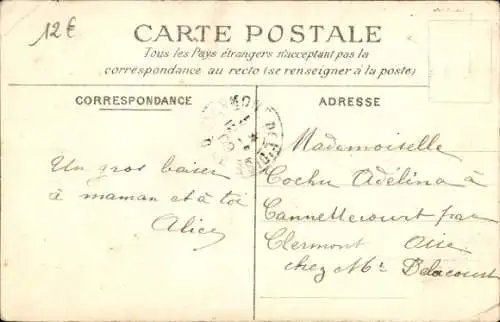 12€
CARTE POSTALE
Tous les Pays étrangers n'acceptant pas la
correspondance au recto (se renseigner à la poste)
CORRESPONDANCE
ADRESSE
Un gros baiser
à maman et à toi
Alice
Mademoiselle
Cochu Adélina à
Cannettecourt par
Clermont Oise
chez Mr Delacourt